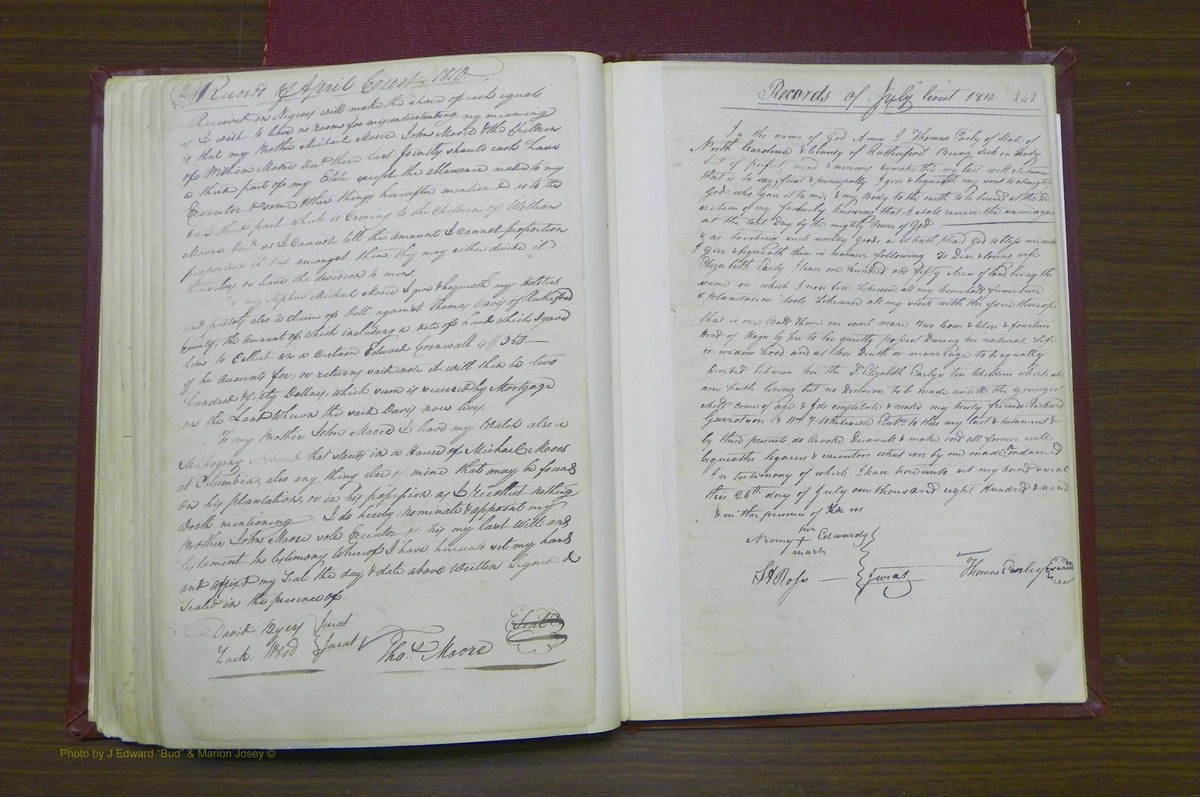 241 Records of April Court 1810
Received in Negroes will make the share of each equal
as I wish to leave no room for misunderstanding, my meaning
is that my Brother Michael Moore John Moore & the Children
of William Moore Decd. them last Jointly should each have
a third part of my Estate except the allowance made to my
Executor & some other things hereafter mentioned as to the
one third part which is Coming to the Children of William
Moore Decd. as I cannot tell the amount I cannot proportion
proportion it but amongst them, they may either divide it
themselves or leave the division to mine.
To my Nephew Michael Moore I give & bequeath my Holsters
and pistols also a claim of Debt against Thomas Davis of Rutherford
County, the amount of which including a note of hand which I gave
him to Collect on a certain Edward Cornwall of $ 250 —
if he accounts for, or returns said note it will then be two
hundred & fifty Dollars which sum is secured by Mortgage
on the Land whereon the said Davis now lives.
To my Brother John Moore I leave my Watch also a
Mahogany that stands in a House of Michael Moores
at Columbia, also any thing else of mine that may be found
on his plantation, or in his possession as I recollect nothing
worth mentioning I do hereby nominate & appoint my
Brother John Moore sole Executor of this my last Will and
testament In testimony whereof I have hereunto set my hand
and affixt my Seal the day & date above Written Signed &
Sealed in the presence of
David Byers Jurat
Zach. Wood Jurat Thos. Moore Seal
Records of July Court 1810 242
In the name of God Amen I Thomas Early of State of
North Carolina & County of Rutherford Being Sick in Body
but of perfect mind & memory & make this my last will & testament
that is to say, first & principally I give & bequeath my soul to almighty
God who Gave it to me, & my Body to the earth to be buried at the dis
cretion of my friends knowing that I shall receive the same again
at the last day by the mighty Power of God
& as touching such worldly Goods as it hath pleasd God to bless me with
I give & bequeath them in manner following To Dear & loving wife
Elizabeth Early I leave one hundred and fifty Acres of land being the
same on which I now live Likewise all my household furniture
& plantation tools Likewise all my stock with the
that is one Bald Horse one sorrel mare two Cows & and fourteen
Head of Hogs by her to be quietly possest During her natural Life
or widow hood and at her Death or marriage to be equally
Devided between her the Sd. Elizabeth Early's ten Children which is
now both living but no Devision to be made untill the youngest
child comes of age & I do constitute & make my trusty friends Richard
& Wm. F. to this my last & testament &
by these presents do Revoke Disannull & make void all former wills
bequeaths legacies & executors what ever by me made or ordained
In testimony of which I have hereunto set my hand & seal
this 26th day of July one thousand eight Hundred & nine
& in the presence of us
her
Naomy + Edwards
mark
Jurat
Thomas Early
Photo by J Edward "Bud" & Marion Josey ©